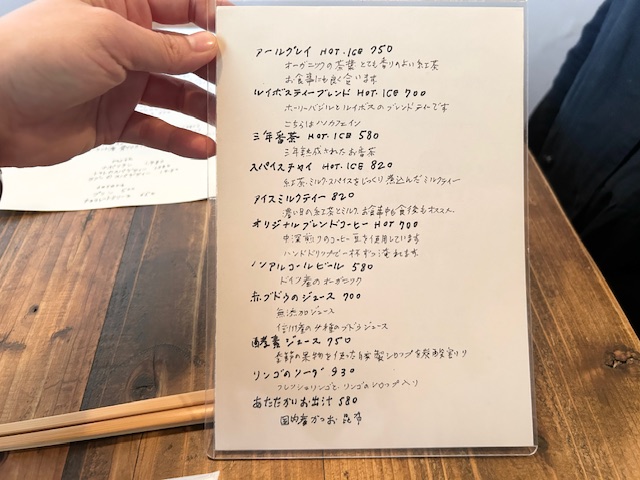 アールグレイ HOT.ICE 750
オーガニックの茶葉 とても香りのよい紅茶
お食事にも良く合います
ルイボスティーブレンド HOT.ICE 700
ホーリーバジルとルイボスのブレンドティーです
こちらはノンカフェイン
三年番茶 HOT.ICE 580
三年熟成されたお番茶
スパイスチャイ HOT.ICE 820
紅茶.ミルク.スパイスをじっくり煮込んだミルクティー
アイスミルクティー 820
濃い目の紅茶とミルク、お食事中も食後もオススメ
オリジナルブレンドコーヒー HOT 700
中深煎りのコーヒー豆を使用しています
ハンドドリップで一杯ずつ淹れます
ノンアルコールビール 580
ドイツ産のオーガニック
赤ブドウのジュース 700
無添加ジュース
信州産の4種のブドウジュース
酵素ジュース 750
季節の果物を使った自家製シロップを炭酸割り
リンゴのソーダ 930
フレッシュリンゴと、リンゴのシロップ入り
あたたかいお出汁 580
国内産かつお 昆布